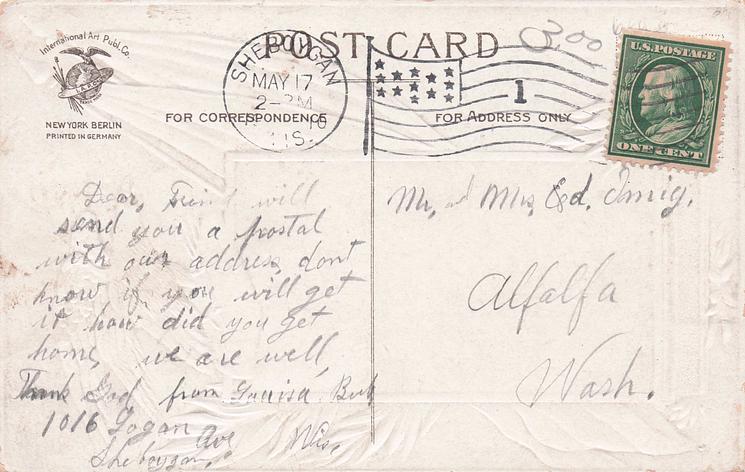 International Art Publ. Co.
NEW YORK BERLIN
PRINTED IN GERMANY
POST CARD
FOR CORRESPONDENCE
FOR ADDRESS ONLY
SHEBOYGAN
MAY 17
2-PM
10
WIS.
1
3.00
U.S. POSTAGE
ONE CENT
Dear, Friend will
send you a postal
with our address, dont
know if you will get
it how did you get
home, we are well,
Thank God from Louisa
1016 Logan Ave
Sheboygan, Wis.
Mr. and Mrs. Ed. Imig.
Alfalfa
Wash.